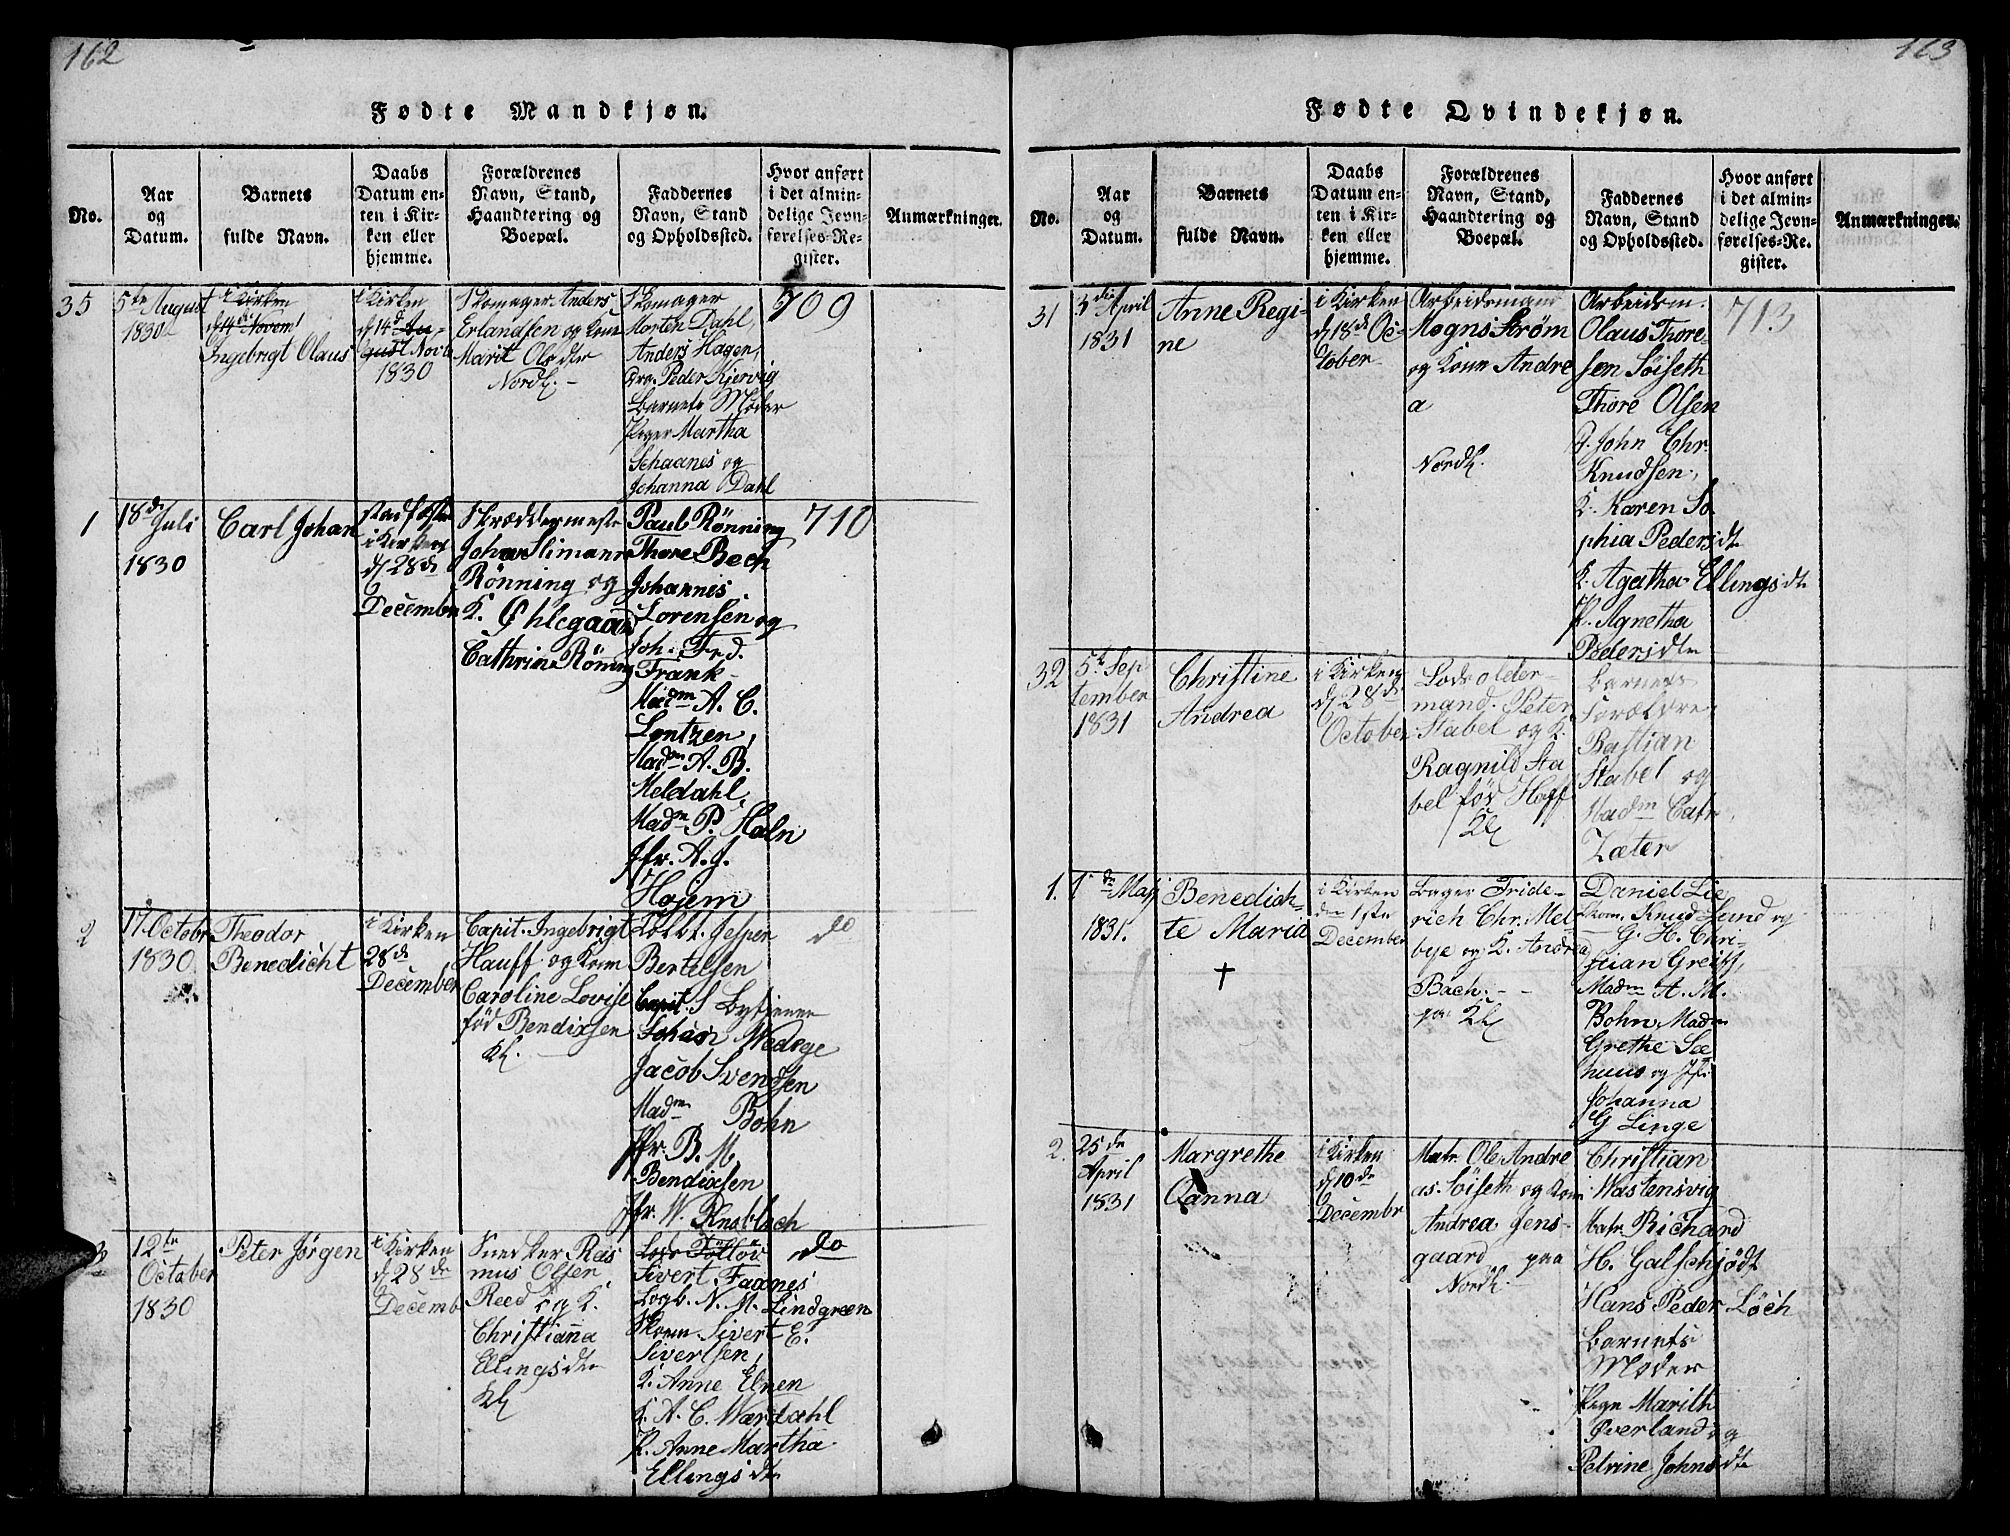 162
Fødte Mandkjøn.
No.
Aar
og
Datum.
Barnets
fulde Navn.
Daabs
Datum en-
ten i Kir-
ken eller
hjemme.
Forældrenes
Navn, Stand,
Haandtering og
Boepæl.
Faddernes
Navn, Stand
og Opholdssted.
Hvor anført
i det almin-
delige Jevn-
førelses-Re-
gister.
Anmærkninger.
35
5te August
1830
i Kirken
d 14de Novem
Ingebrigt Olaus
i Kirken
d 14de Au-
gust Novb
1830
Skomager Anders
Erlandsen og Kone
Marit Olsdtr
Nordl. -
Skomager
Morten Dahl,
Anders Hagen,
Peder Kjervig
Barnets Moder
Piger Martha
Schaanes og
Johanna Dahl
709
1
18de Juli
1830
Carl Johan
i Kirken
d 28de
December
Skræddermester
Johan Slimann
Rönning og
K. Øhlegaard
Cathrine Rönning
Paul Rönning
Thore Bech
Johannes
Lorensen og
Joh. Fred.
Frank
Madm A. C.
Lentzen,
Madm A. B.
Meldahl,
Madm P. Holn
Jfr. A. J.
Hojem
710
2
17 Octobr
1830
Theodor
Benedicht
i Kirken
28de
December
Capit. Ingebrigt
Hauff og Kone
Caroline Lovise
fød Bendixsen
Kl.
Jesper
Bertelsen
Capit. S Bystiener
Johan Wedege
Jacob Svendsen
Madm Bohn
Jfr. B. M.
Bendixsen
Jfr. W. Knoblach
do
3
12te
October
1830
Peter Jørgen
i Kirken
d 28de
Decemb
Snedker Ras
mus Olsen
Reed og K.
Christianna
Ellingsdtr
Kl
Lods Tölløv
Sivert Faanes
Logb. N. M. Lindgreen
Skom Sivert E.
Sivertsen,
K. Anne Elnen
K. A. C. Wærdahl
P. Anne Martha
Ellingsdtr
do
163
Fødte Qvindekjøn.
No.
Aar
og
Datum.
Barnets
fulde Navn.
Daabs
Datum en-
ten i Kir-
ken eller
hjemme.
Forældrenes
Navn, Stand,
Haandtering og
Boepæl.
Faddernes
Navn, Stand
og Opholdssted.
Hvor anført
i det almin-
delige Jevn-
førelses-Re-
gister.
Anmærkninger.
31
April
1831
Anne Regi-
ne
i Kirken
d 18de Oc-
tober
Arbeidsmand
Mogns Strøm
og Kone Andre
a
Nordl.
Arbeidsm.
Olaus Thore-
sen Söiseth
Thore Olsen
John Chr.
Knudsen,
K. Karen So
phia Pedersdtr
K. Agatha Ellingsdtr
P. Agnetha
Pedersdtr
713
32
5te Sep
tember
1831
Christine
Andrea
i Kirken
d 28de
October
Lodsolder-
mand Peter
Stabel og K.
Ragnild Sta
bel fød Hoff
Kl
Barnets
Forældre
Bastian
Stabel og
Madm Catr.
Zæter
1.
1de Maij
1831.
Benedich-
te Maria
+
i Kirken
den 1ste
December
Bager Fride-
rich Chr. Mel-
bye og K. Andrea
Bach. -
paa Kl
Daniel Lie
Skom. Knud Lund og
G. H. Chri-
stian Greiff,
Madm A. M.
Bohn Madm
Grethe See
huus og Jfr
Johanna
G Linge
2.
25de
April
1831
Margrethe
Oanna
i Kirken
d 10de
Decembr
Matr. Ole Andre
as Söiseth og Kone
Andrea Jens-
gaard paa
Nordl.
Christian
Wastensvig
Matr. Richard
H. Galschjödt
Hans Peder Löch
Barnets
Moder
Pign Marith
Øverland og
Petrine Johnsdtr